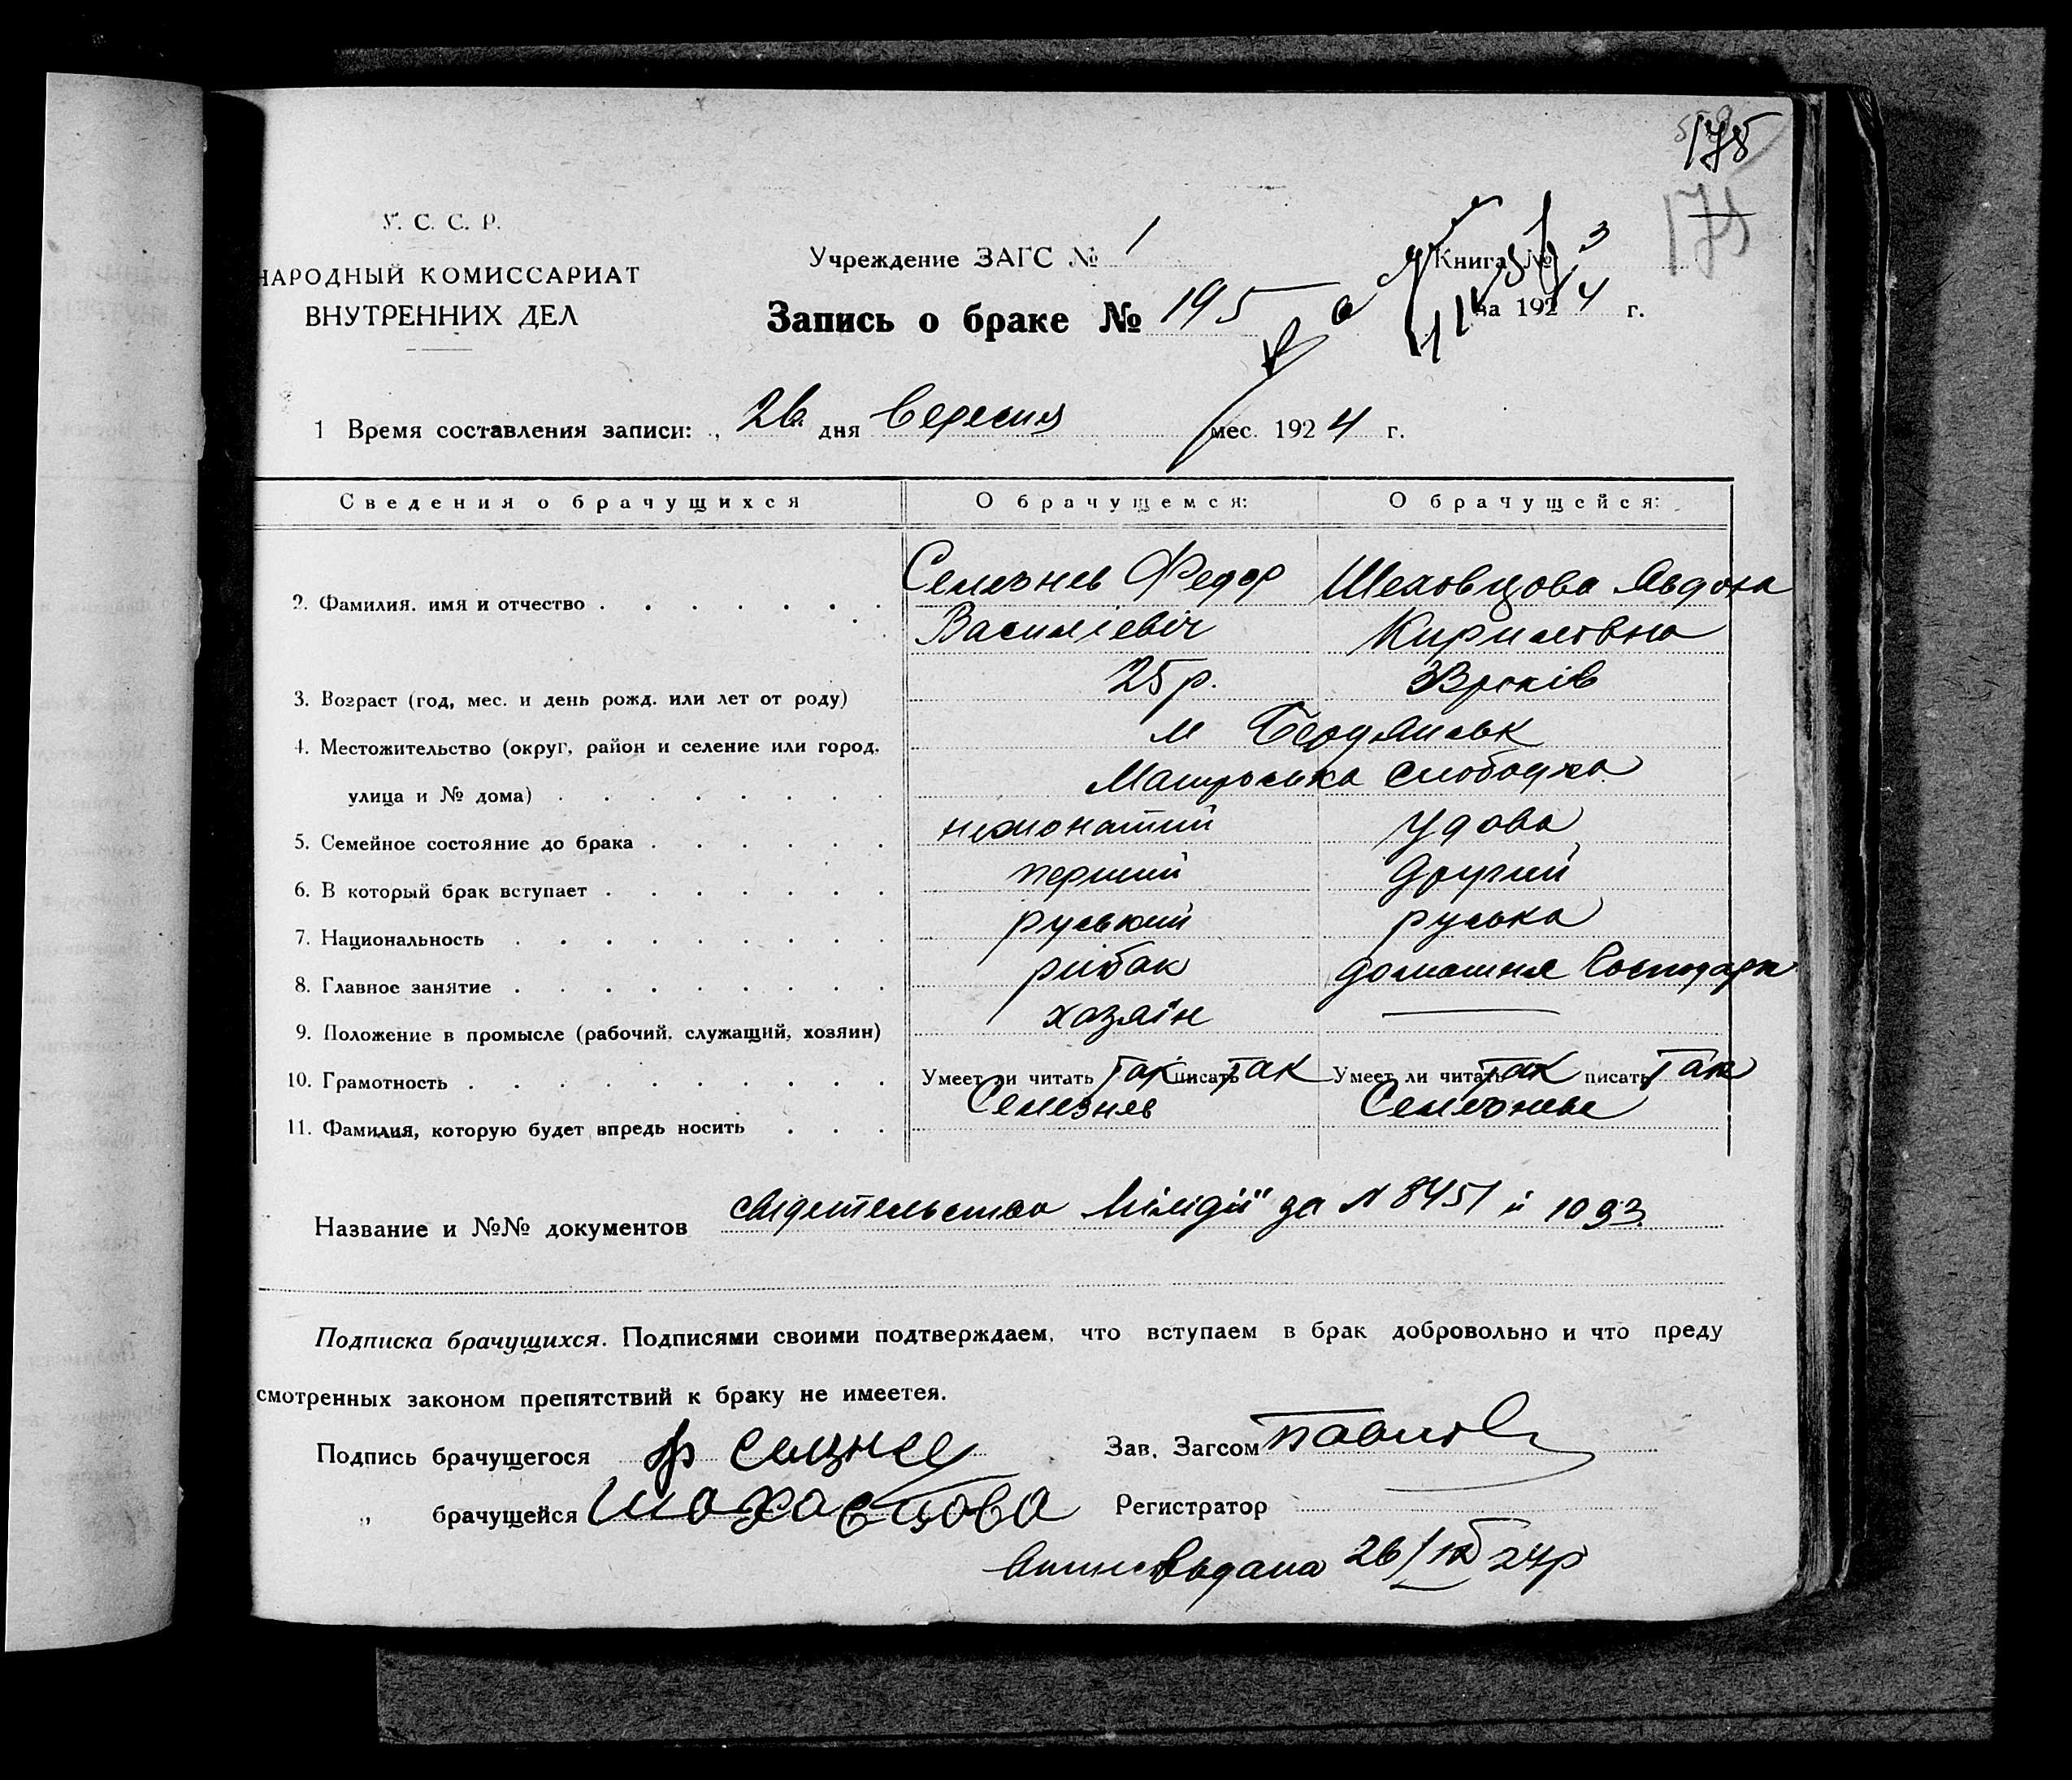 178
175
У. С. С. Р.
НАРОДНЫЙ КОМИССАРИАТ
ВНУТРЕННИХ ДЕЛ
Учреждение ЗАГС № 1
Книга № 3
Запись о браке № 195
за 1924 г.
1 Время составления записи: 26 дня Вересня мес. 1924 г.
Сведения о брачущихся О брачущемся: О брачущейся:
2. Фамилия, имя и отчество Селезнев Федор Шеховцова Явдоха
Василіевіч Кириловна
3. Возраст (год, мес. и день рожд. или лет от роду) 25 р. років
4. Местожительство (округ, район и селение или город, м Бердянськ
улица и № дома) Матроська слободка
5. Семейное состояние до брака нежонатий удова
6. В который брак вступает перший другий
7. Национальность руський руська
8. Главное занятие рибак домашня Господарк
9. Положение в промысле (рабочий, служащий, хозяин) хазяїн —
10. Грамотность Умеет ли читать так писать так Умеет ли читать так писать так
11. Фамилия, которую будет впредь носить Селезнев Селезнева
Название и №№ документов свідетельство Міліціі за N 8451 й 1093
Подписка брачущихся. Подписями своими подтверждаем, что вступаем в брак добровольно и что преду
смотренных законом препятствий к браку не имеетея.
Подпись брачущегося ф селзнев Зав. Загсом Павлов
„ брачущейся Шахавцова Регистратор
Выдана 26/IX 24р